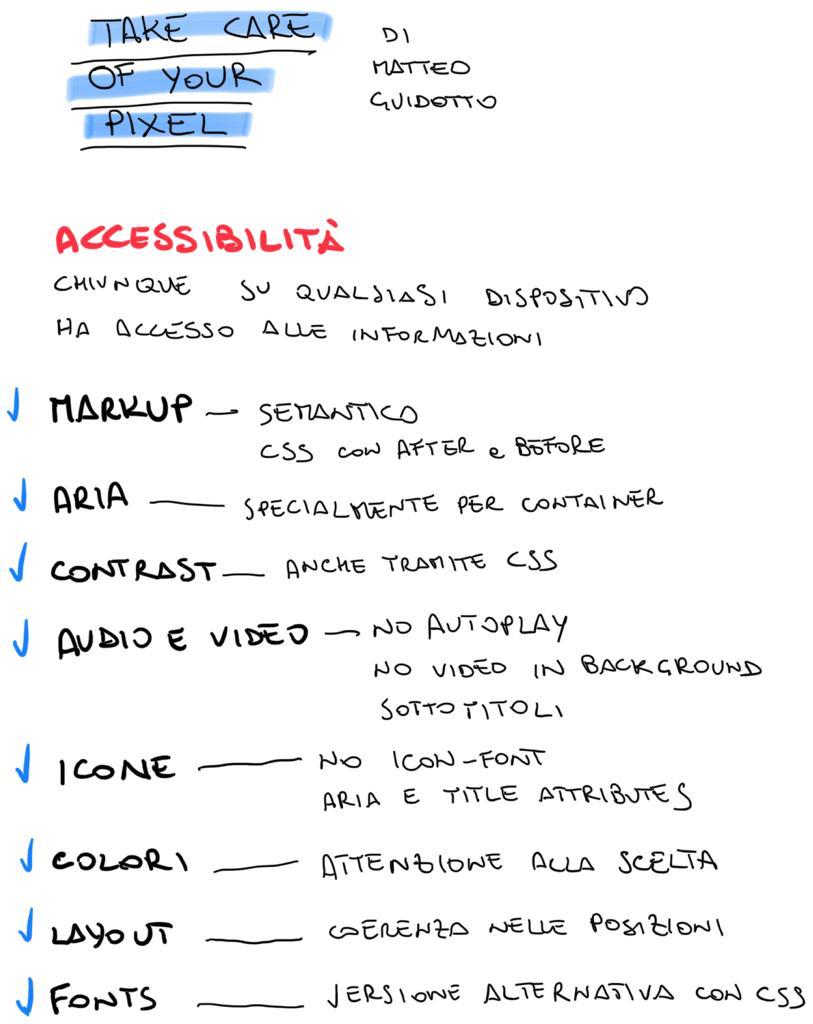 TAKE CARE
OF YOUR
PIXEL
DI
MATTEO
GUIDOTTO
ACCESSIBILITÀ
CHIUNQUE SU QUALSIASI DISPOSITIVO
HA ACCESSO ALLE INFORMAZIONI
MARKUP — SEMANTICO
CSS CON AFTER e BEFORE
ARIA — SPECIALMENTE PER CONTAINER
CONTRAST — ANCHE TRAMITE CSS
AUDIO E VIDEO — NO AUTOPLAY
NO VIDEO IN BACKGROUND
SOTTOTITOLI
ICONE — NO ICON-FONT
ARIA E TITLE ATTRIBUTES
COLORI — ATTENZIONE ALLA SCELTA
LAYOUT — COERENZA NELLE POSIZIONI
FONTS — VERSIONE ALTERNATIVA CON CSS